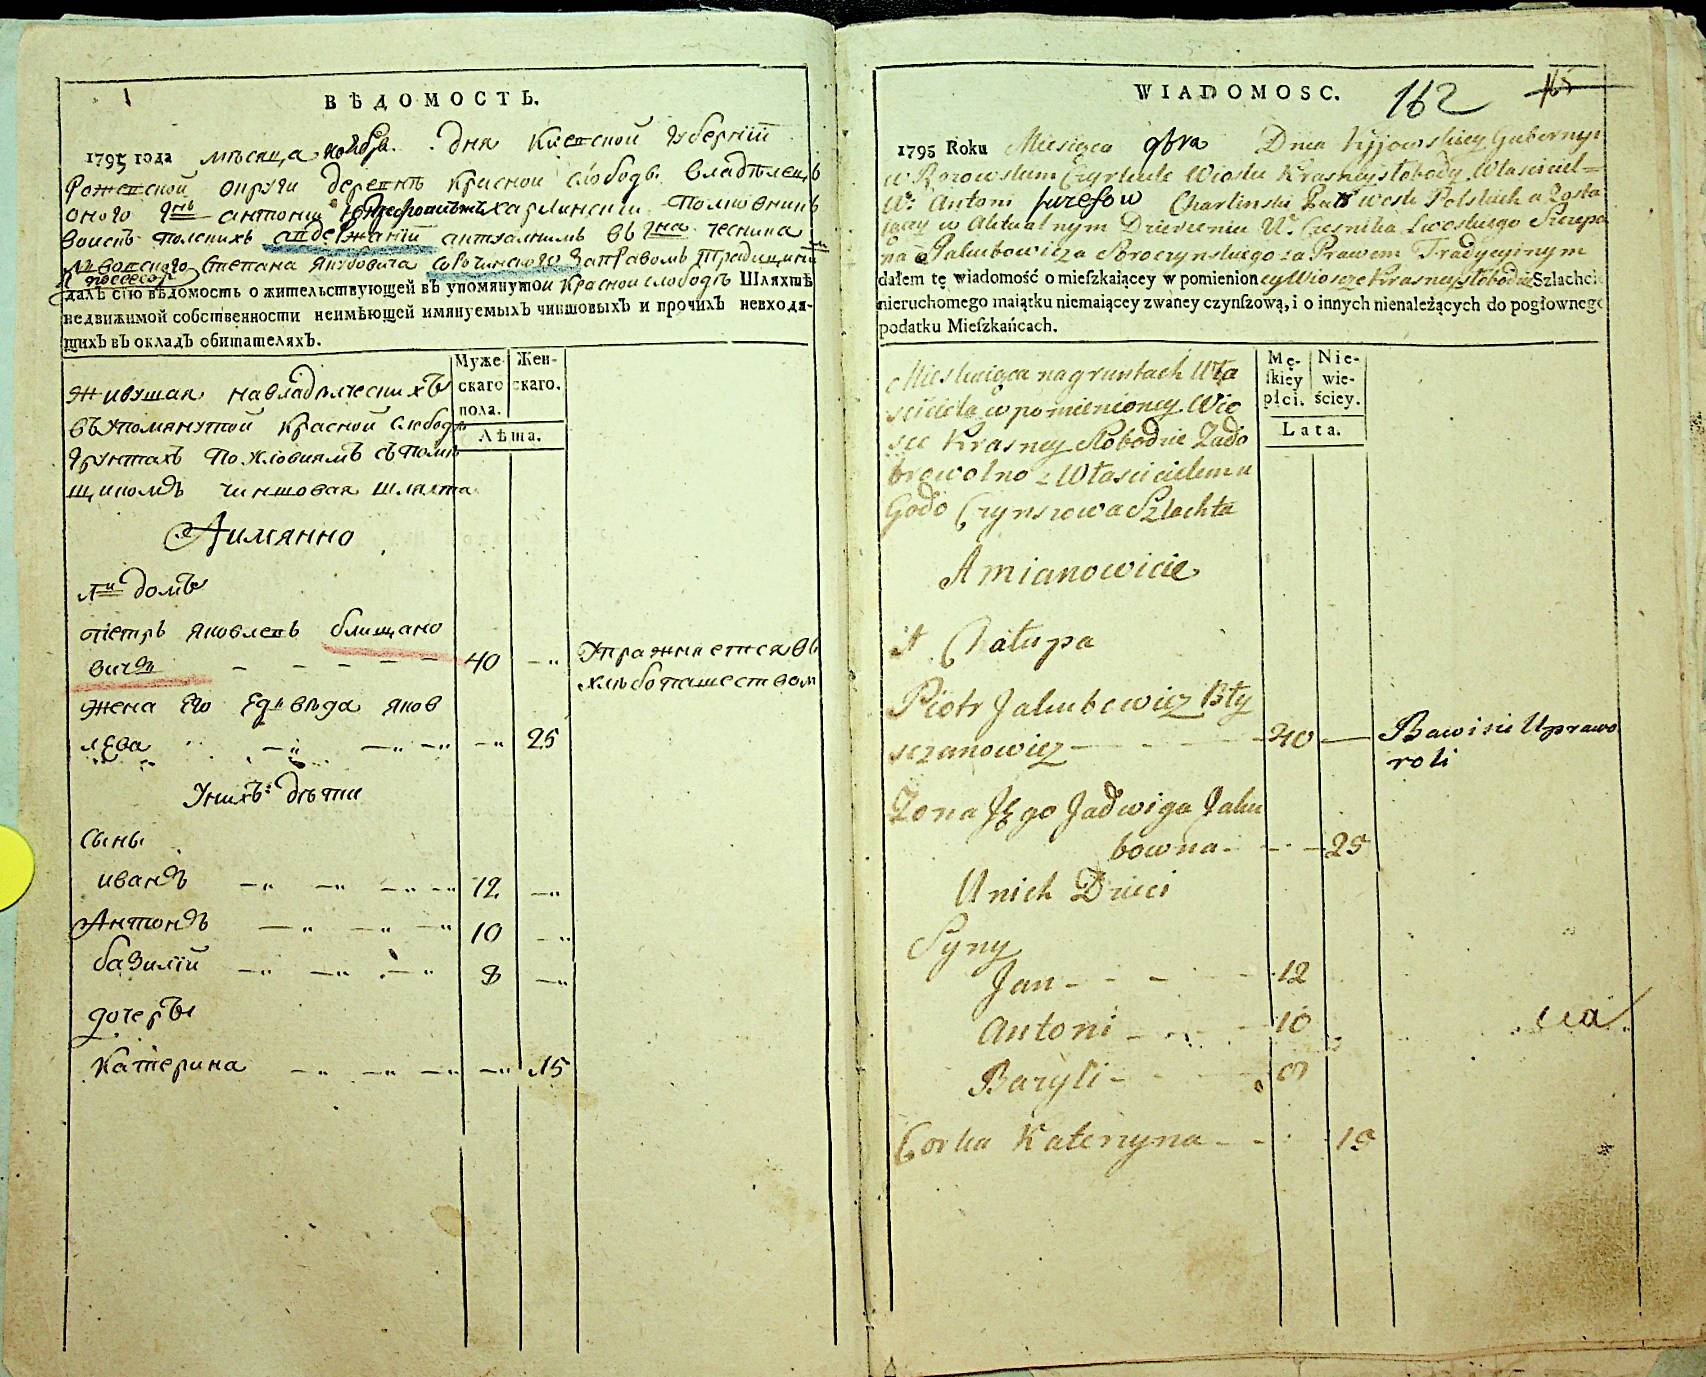 ВѢДОМОСТЬ.
1795 года мѣсяца ноября дня Киевской губернїи
округи деревнѣ красной слободы владѣлецъ
оного антонiй харлинский полковникъ
войскъ польскихъ а въ держанiй актуалнымъ въ чесника
Степана Якубовича сорочинского заправомъ традицийнимъ
посесора
далъ сїю вѣдомость о жительствующей въ упомянутой красной слободѣ Шляхтѣ
недвижимой собственности неимѣющей имянуемыхъ чиншовыхъ и прочихъ невходя-
щихъ въ окладъ обитателяхъ.
Муже-
скаго
пола.
Жен-
скаго.
Лѣта.
живущая навладѣлческихъ
въупомянутой красной слободѣ
грунтахъ по условиямъ съпомѣ
щикомъ чиншовая шляхта
Аимянно
домъ
петръ яковлевъ блищано
вичъ 40
Упражняется въ
хлѣбопашеством
жена его Ядвѣга яков
лева 25
Унихъ дѣти
сыны
иванъ 12
Антонъ 10
базилїй 8
дочерь
катерина 15
WIADOMOSC.
162
165
1795 Roku Miesiąca 9bra Dnia Kijowskiey Gubernyi
Cyrkule Wiosku Krasney słobody Własciciel
Wo Antoni Juzefow Charlinski Woysk Polskich a Zosta
iący w Aktualnym Dzierzeniu Wo Czesnika Szczepa
na Jakubowicza Soroczynskiego za Prawem Tradycyinym
dałem tę wiadomość o mieſzkaiącey w pomienioney Wiosce Krasney słobodzie Szlachcie
nieruchomego maiątku niemaiącey zwaney czynſzową, i o innych nienależących do pogłownego
podatku Mieſzkańcach.
Mę-
ſkiey
płci.
Nie-
wie-
ściey.
Lata.
Mieszkaiąca na gruntach Wła
sciciela w pomienioney Wio
sce Krasney Słobodzie Zado
browolno z Włascicielem u
godo Czynszowa Szlachta
Amianowicie
1 Chałupa
Piotr Jakubowicz Bły
szczanowicz 40
Bawi sie Uprawo
roli
Zona Jego Jadwiga Jaku
bowna 25
Unich Dzieci
Syny
Jan 12
Antoni 10
Bazyli 8
Corka Katerzyna 15